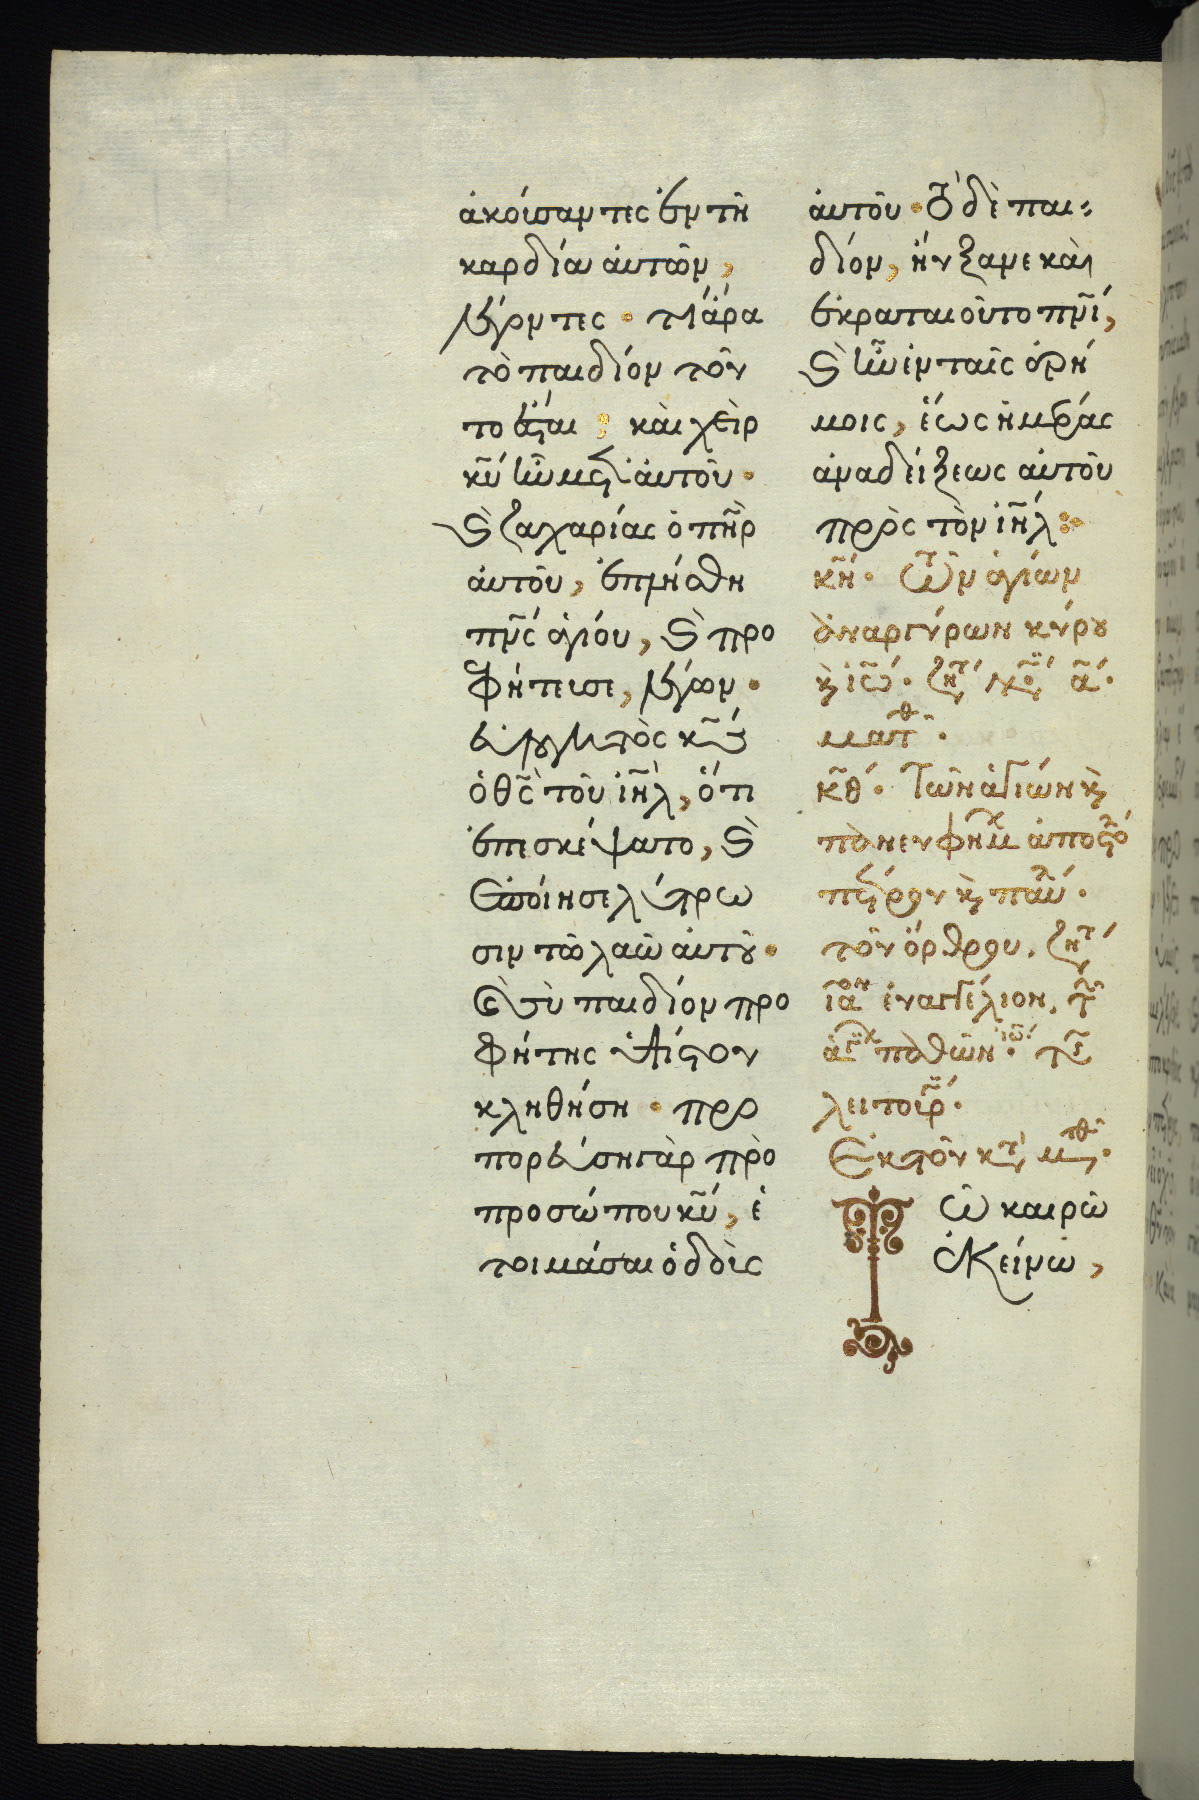 ἀκούσαντες ἐν τῆ
καρδία αὐτῶν,
λέγοντες · τί ἄρα
τὸ παιδίον τοῦ
το ἔσται ; καὶ χεὶρ
κ̅υ̅ ἦν μετ' αὐτοῦ ·
καὶ ζαχαρίας ὁ π̅η̅ρ
αὐτοῦ, ἐπλήσθη
π̅ν̅ς ἁγίου, καὶ προ
φήτευσε, λέγων ·
εὐλογητὸς κ̅ς̅
ὁ θ̅ς̅ τοῦ ἰ̅η̅λ, ὅτι
ἐπεσκέψατο, καὶ
ἐποίησε λύτρω
σιν τῶ λαῶ αὐτοῦ ·
Καὶ σὺ παιδίον προ
φήτης ὑψίστου
κληθήση · προ
πορεύση γὰρ πρὸ
προσώπου κ̅υ̅, ἑ
τοιμάσαι ὁδοὺς
αὐτοῦ · Τὸ δὲ παι
δίον, ηὔξανε καὶ
ἐκραταιοῦτο π̅ν̅ι,
καὶ ἦν ἐν ταῖς ἐρή
μοις, ἕως ἡμέρας
ἀναδείξεως αὐτοῦ
πρὸς τὸν ἰ̅η̅λ :
κ̅η̅ · Τῶν ἁγίων
ἀναργύρων κύρου
κ̣ ἰ̅ω̅ · ζητ
ματθ ·
κ̅θ̅ · Τῶν ἁγίων κ̣
πανευφημ ἀποστό
πέτρου κ̣ παύλ ·
τοῦ ὄρθρου. ζητ
ἰ̅α̅ εὐαγγέλιον. τ
λειτουρ ·
Ἐκ τοῦ κτ μτθ ·
Τῶ καιρῶ
ἐκείνω,